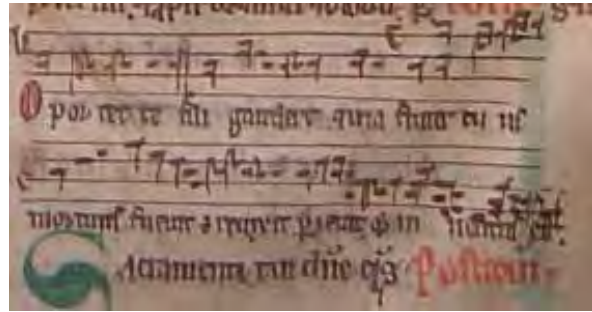 Opor tet te fili gaudere quia frater tu us
mortuus fuerat ⁊ reuixit ꝑierat ⁊ in uentus est.
Sacramenta tua dñe q̃s Postcom